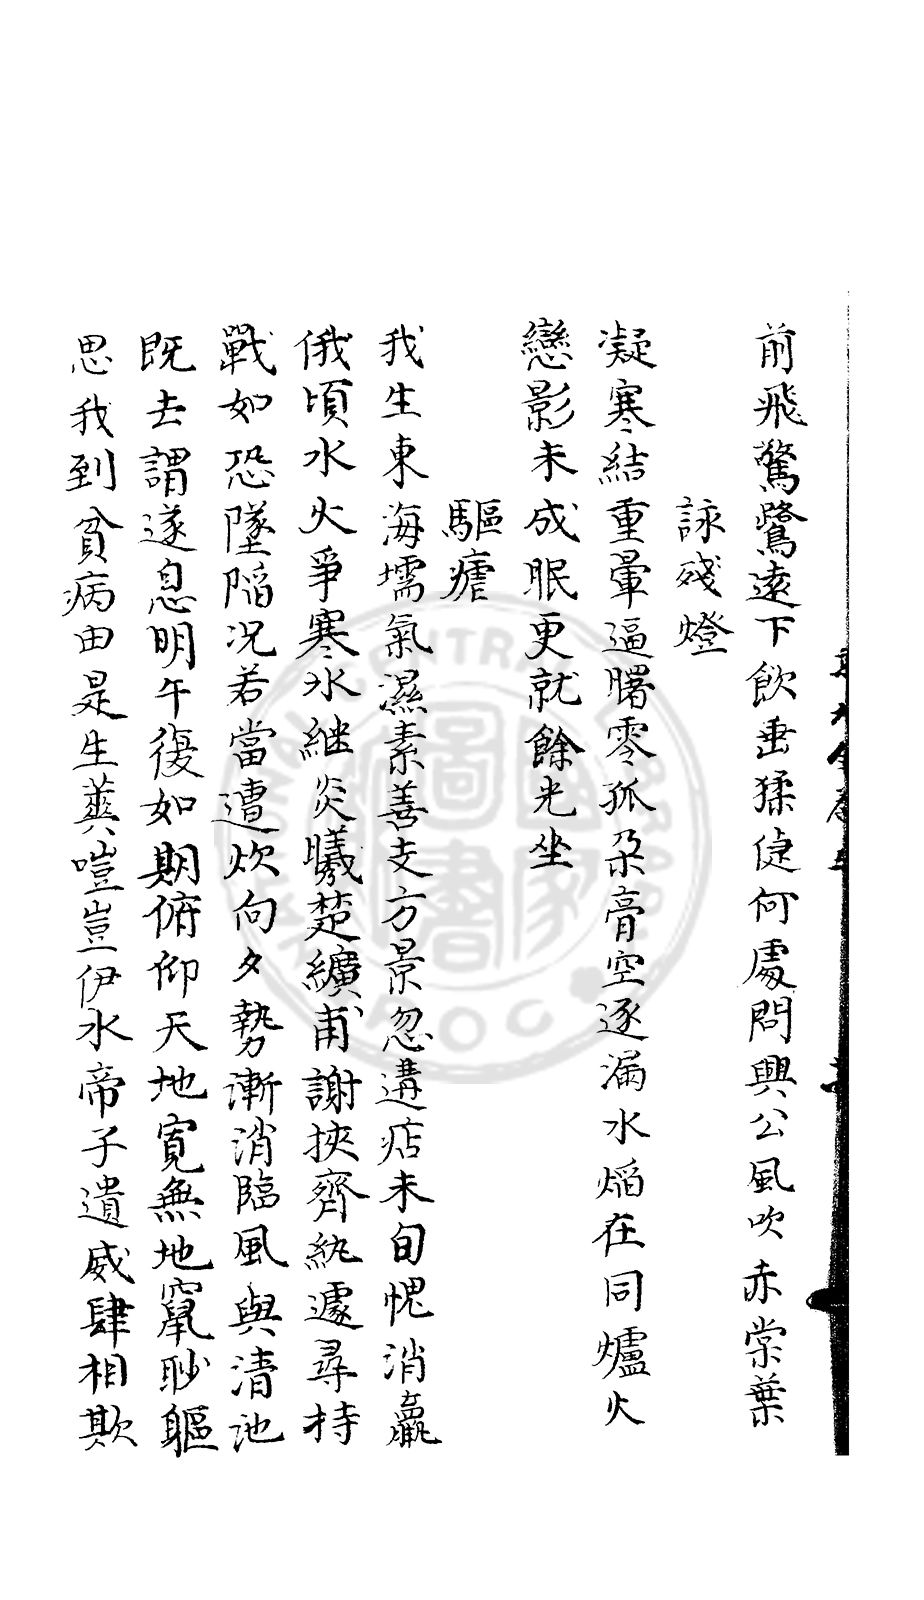 前飛驚鷺遠下飲垂猱倢何處問興公風吹赤棠葉
詠殘燈
凝寒結重暈逼曙零孤朶膏空逐漏水焰在同爐火
戀影未成眠更就餘光坐
驅瘧
我生東海壖氣濕素善支方景忽遘痁未旬愧消羸
俄頃水火爭寒氷継炎曦楚纊甫謝挾齊紈遽尋持
戰如恐墜陷况若當遭炊向夕勢漸消臨風與清池
既去謂遂息明午復如期俯仰天地寛無地竄眇軀
思我到貧病由是生美噬豈伊水帝子遺威肆相欺